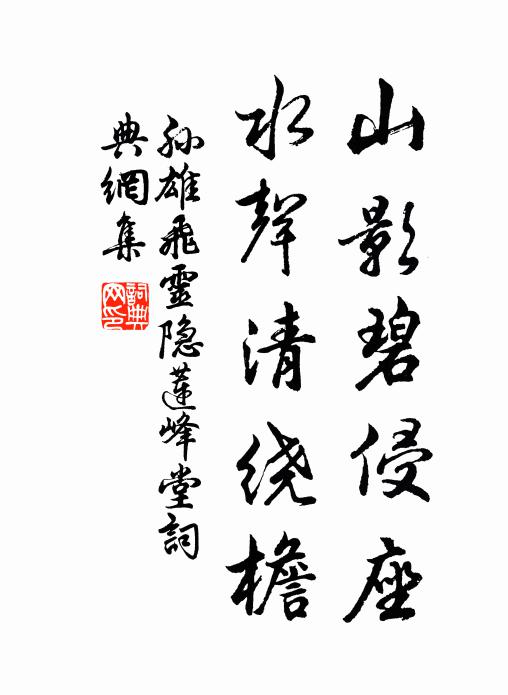 山影碧侵座
水聲清绕檐
孙雄飛靈隐蓮峰堂詞
典網集
詞典
网印